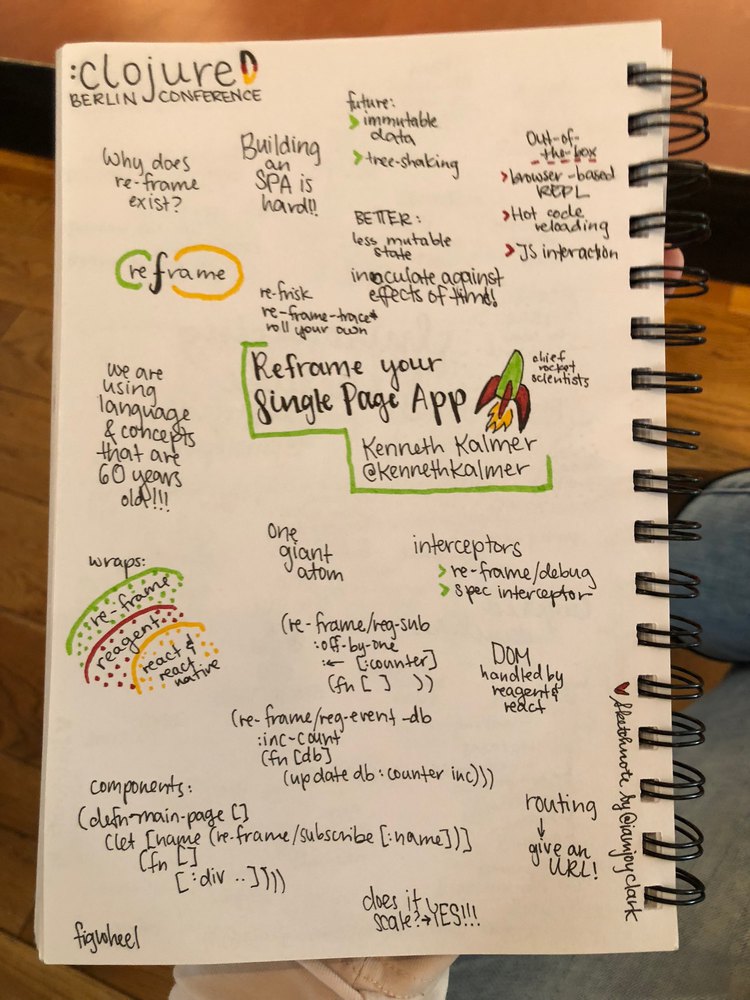 :clojureD
BERLIN CONFERENCE
Why does
re-frame
exist?
Building
an
SPA is
hard!!
future:
> immutable
data
> tree-shaking
Out-of-
-the-box
> browser-based
REPL
> Hot code
reloading
> JS interaction
BETTER:
less mutable
state
inoculate against
effects of time!
reframe
re-frisk
re-frame-trace*
roll your own
Reframe your
Single Page App
chief
rocket
scientists
Kenneth Kalmer
@kennethkalmer
we are
using
language
& concepts
that are
60 years
old!!!
one
giant
atom
interceptors
> re-frame/debug
> spec interceptor
wraps:
re-frame
reagent
react &
react
native
(re-frame/reg-sub
:off-by-one
:← [:counter]
(fn [ ] ))
DOM
handled by
reagent &
react
(re-frame/reg-event-db
:inc-count
(fn [db]
(update db :counter inc)))
components:
(defn-main-page []
(let [name (re-frame/subscribe [:name])]
(fn []
[:div ..])))
routing
↓
give an
URL!
does it
scale? → YES!!!
figwheel
♥ sketchnote by @iamjoyclark